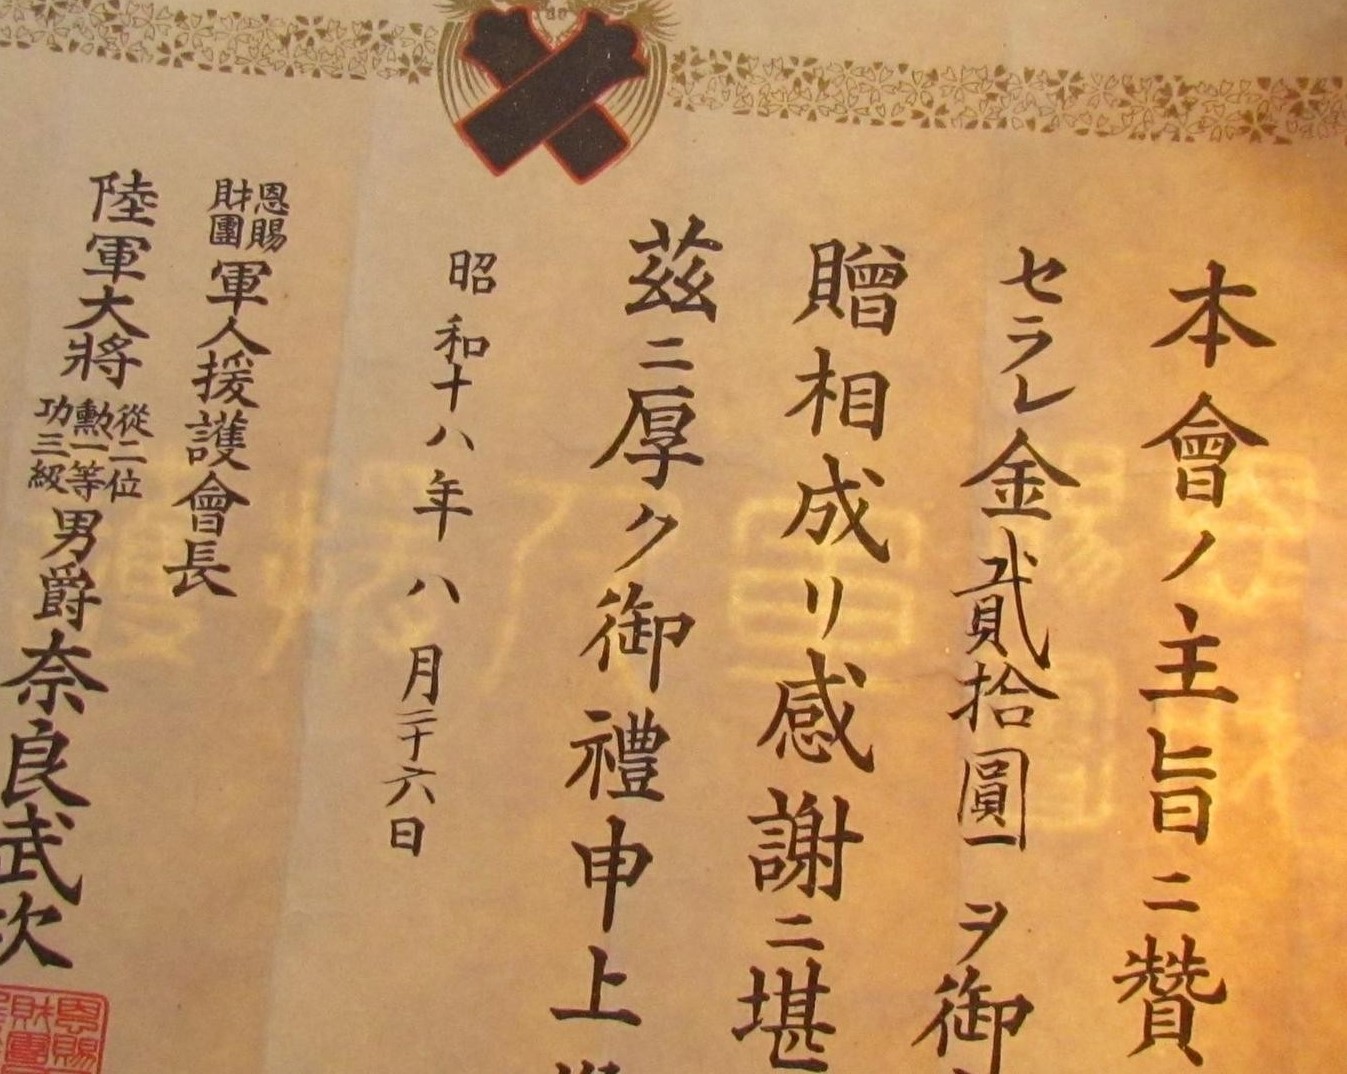 本會ノ主旨ニ贊
セラレ金貳拾圓一ヲ御
贈相成リ感謝ニ堪
茲ニ厚ク御禮申上
昭和十八年八月二十六日
恩賜
財團
軍人援護會長
陸軍大將
從二位
勳一等
功三級
男爵奈良武次
恩賜
財團